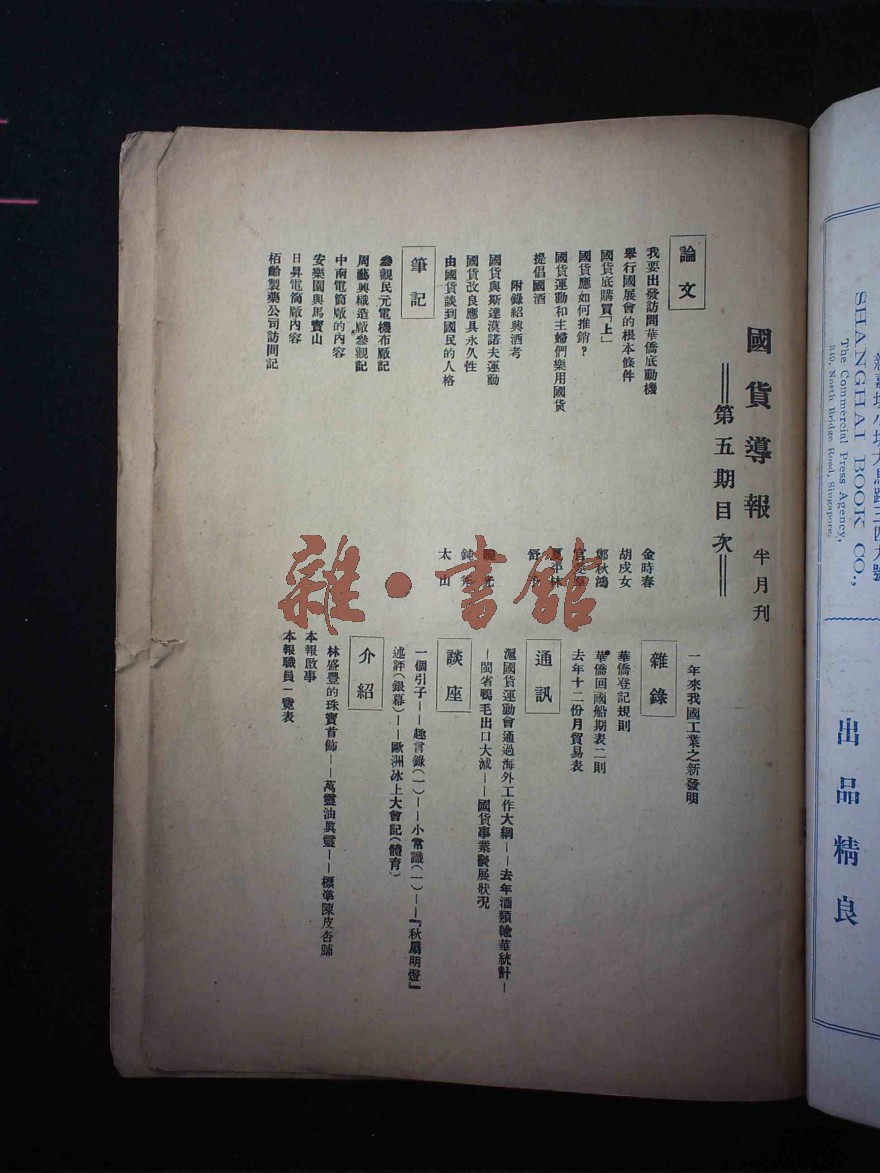 國貨導報 半月刊
第五期目次
論文
我要出發訪問華僑底動機 金時春
舉行國展會的根本條件 胡戍女
國貨底購買「上」 鄭秋鴻
國貨應如何推銷？
國貨運動和主婦們樂用國貨
提倡國酒
附錄紹興酒考
國貨與斯達漠諾夫運動
國貨改良應具永久性
由國貨談到國民的人格 太山
筆記
參觀民元電機布廠記
周藝興織造廠參觀記
中南電筒廠的內容
安樂園與馬寶山
日昇電筒廠內容
栢齡製藥公司訪問記
一年來我國工業之新發明
雜錄
華僑登記規則
華僑回國船期表二則
去年十二份月貿易表
通訊
滬國貨運動會通過海外工作大綱——去年酒類輸華統計—
—閩省鴨毛出口大減——國貨事業發展狀況
談座
一個引子——趣言錄(一)——小常識(一)——『秋扇明燈』
述評(銀幕)——歐洲冰上大會記(體育)
介紹
林盛豐的珠寶首飾——萬靈油眞靈——標準陳皮杏脯
本報啟事
本報職員一覽表
雜·書館
新嘉坡小坡大馬路三四九號
SHANGHAI BOOK CO.,
The Commercial Press Agency,
340, North Bridge Road, Singapore.
出品精良